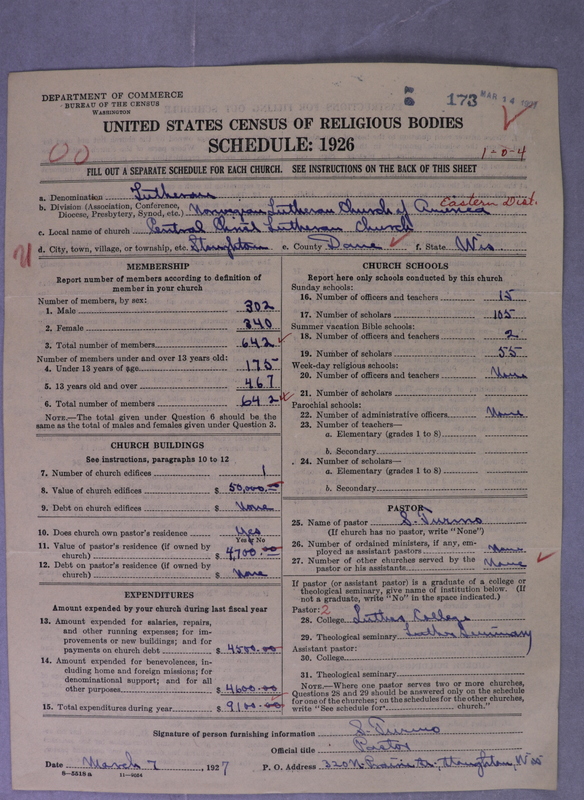 DEPARTMENT OF COMMERCE
BUREAU OF THE CENSUS
WASHINGTON
173 MAR 14 1927
UNITED STATES CENSUS OF RELIGIOUS BODIES
SCHEDULE: 1926
00
1-0-4
FILL OUT A SEPARATE SCHEDULE FOR EACH CHURCH. SEE INSTRUCTIONS ON THE BACK OF THIS SHEET
a. Denomination Lutheran
b. Division (Association, Conference, Diocese, Presbytery, Synod, etc.) Norwegian Lutheran Church of America Eastern Dist.
c. Local name of church Central Lutheran Church
d. City, town, village, or township, etc. Stoughton e. County Dane f. State Wis
MEMBERSHIP
Report number of members according to definition of
member in your church
Number of members, by sex:
1. Male 302
2. Female 340
3. Total number of members 642
Number of members under and over 13 years old:
4. Under 13 years of age 175
5. 13 years old and over 467
6. Total number of members 642
NOTE.—The total given under Question 6 should be the
same as the total of males and females given under Question 3.
CHURCH BUILDINGS
See instructions, paragraphs 10 to 12
7. Number of church edifices 1
8. Value of church edifices $ 50,000.—
9. Debt on church edifices $ None
10. Does church own pastor's residence? Yes
Yes or No
11. Value of pastor's residence (if owned by
church) $ 4,700.00
12. Debt on pastor's residence (if owned by
church) $ None
EXPENDITURES
Amount expended by your church during last fiscal year
13. Amount expended for salaries, repairs,
and other running expenses; for im-
provements or new buildings; and for
payments on church debt $ 4500.00
14. Amount expended for benevolences, in-
cluding home and foreign missions; for
denominational support; and for all
other purposes $ 4600.00
15. Total expenditures during year $ 9100.00
CHURCH SCHOOLS
Report here only schools conducted by this church
Sunday schools:
16. Number of officers and teachers 15
17. Number of scholars 105
Summer vacation Bible schools:
18. Number of officers and teachers 2
19. Number of scholars 55
Week-day religious schools:
20. Number of officers and teachers None
21. Number of scholars
Parochial schools:
22. Number of administrative officers None
23. Number of teachers—
a. Elementary (grades 1 to 8)
b. Secondary
24. Number of scholars—
a. Elementary (grades 1 to 8)
b. Secondary
PASTOR
25. Name of pastor S. Turmo
(If church has no pastor, write "None")
26. Number of ordained ministers, if any, em-
ployed as assistant pastors None
27. Number of other churches served by the
pastor or his assistants None
If pastor (or assistant pastor) is a graduate of a college or
theological seminary, give name of institution below. (If
not a graduate, write "No" in the space indicated.)
Pastor: 2
28. College Luther College
29. Theological seminary Luther Seminary
Assistant pastor:
30. College
31. Theological seminary
NOTE.—Where one pastor serves two or more churches,
Questions 28 and 29 should be answered only on the schedule
for one of the churches; on the schedules for the other churches,
write "See schedule for church."
Signature of person furnishing information S. Turmo
Official title Pastor
Date March 7, 1927 P. O. Address 320 N. Prairie St., Stoughton, Wis
6—5518a 11—9034